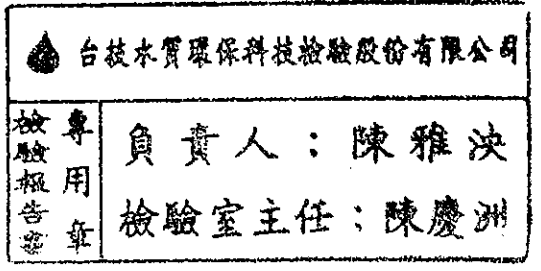 台技水質環保科技檢驗股份有限公司
檢驗報告室
專用章
負責人：陳雅泱
檢驗室主任：陳慶洲